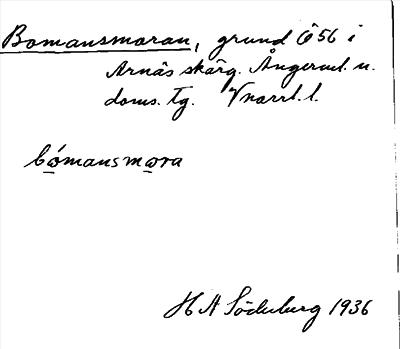 Bomansmoran, grund Ö 56 i
Arnäs skärg. Ångerml. n.
doms. tg. Vnorrl. l.
bómansmora
H A Söderberg 1936